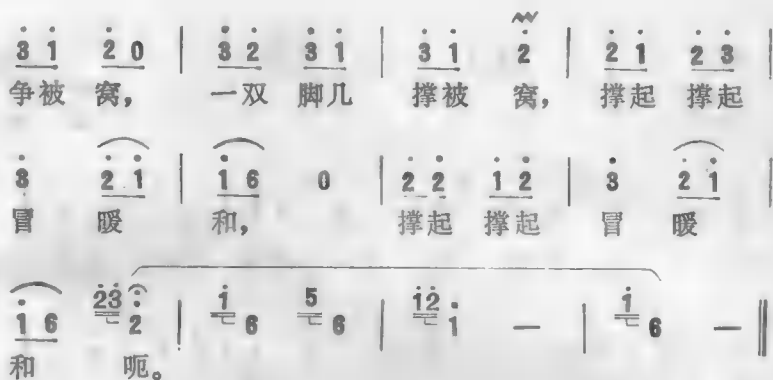 3 1 2 0 | 3 2 3 1 | 3 1 2 | 2 1 2 3 |
争被 窝， 一双 脚儿 撑被 窝， 撑起 撑起
3 2 1 | 1 6 0 | 2 2 1 2 | 3 2 1 |
冒 暖 和， 撑起 撑起 冒 暖
1 6 23 2 | 1 6 5 6 | 12 1 — | 1 6 — ‖
和 呃。